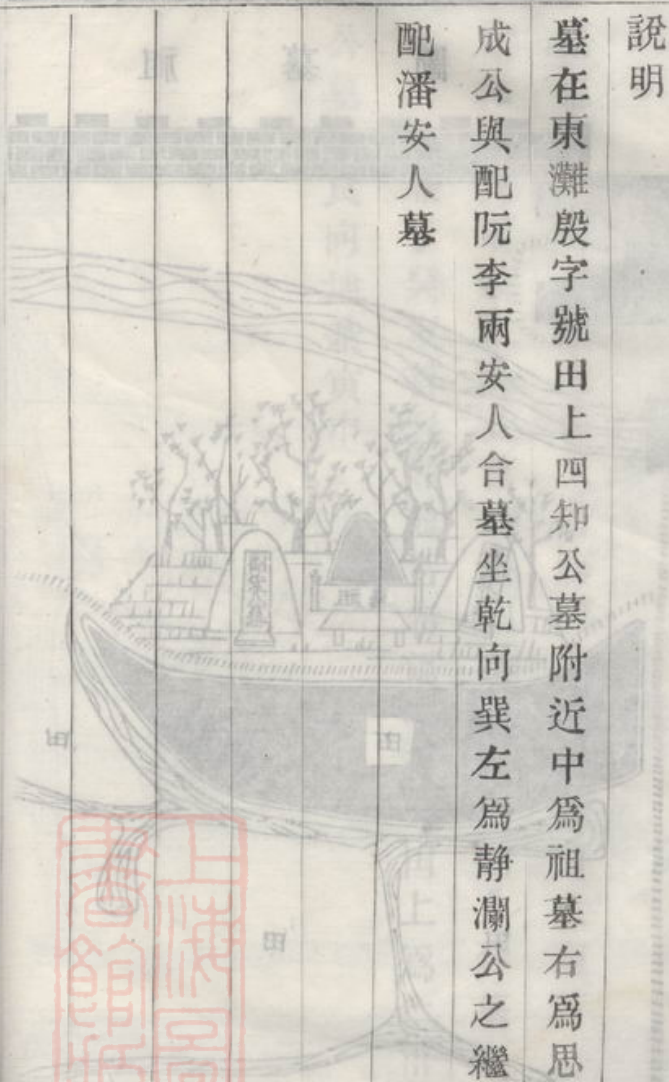 說明
墓在東灘殷字號田上四知公墓附近中爲祖墓右爲思
成公與配阮李兩安人合墓坐乾向巽左爲静瀾公之繼
配潘安人墓